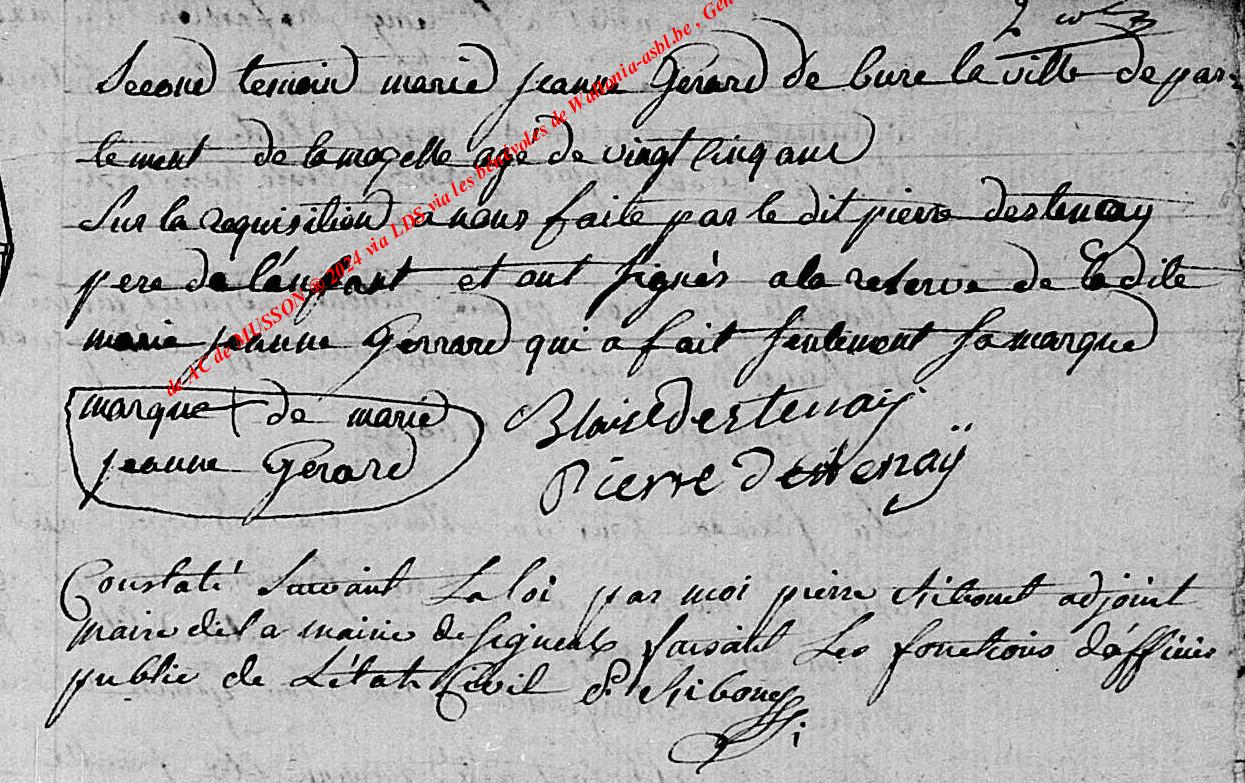 Second temoin marie jeanne Gerard de bure la ville depar-
tement de la mozelle agé de vingt cinq ans
Sur la requisition a nous faite par le dit pierre destenay
pere de l'enfant et ont signés a la reserve de ladite
marie jeanne Gerrard qui a fait seulement sa marque
marque + de marie
jeanne Gerard
Blaise destenaÿ
Pierre destenaÿ
Constaté suivant La loi par moi pierre adjoint
maire de la mairie de signeulx faisant Les fonctions d'officier
public de L'état Civil P.
de AC de MUSSON @ 2024 via LDS via les bénévoles de Wallonia-asbl.be , Gen